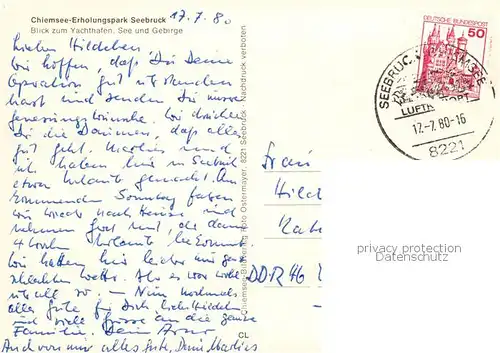 Chiemsee-Erholungspark Seebruck
Blick zum Yachthafen, See und Gebirge
17.7.80
Liebes Hildchen!
Wir hoffen, daß Du Deine
Operation gut überstanden
hast und senden Dir unsere
Genesungswünsche. Wir drücken
Dir die Daumen, daß alles
gut geht. Marlies und
ich haben hier in Seebruck
etwas Urlaub gemacht. Am
kommenden Sonntag fahren
wir wieder nach Hause und
nehmen Gerd mit, der dann
4 Wochen Urlaub bekommt.
Wir hatten hier leider nur ganz
schlechtes Wetter. Aber es war wohl
überall so. – Nun nochmals
alles Gute für Dich liebes Hildchen
und viele Grüsse an die ganze
Familie. Dein
Auch von mir alles Gute, Deine Marlies
Chiemsee-Bildverlag Foto Ostermayer, 8221 Seebruck Nachdruck verboten
CL
DEUTSCHE BUNDESPOST
50
SEEBRUCK, CHIEMSEE
LUFTK
17.-7.80-16
8221
Frau
Hild
Rat
DDR 46
privacy protection
Datenschutz